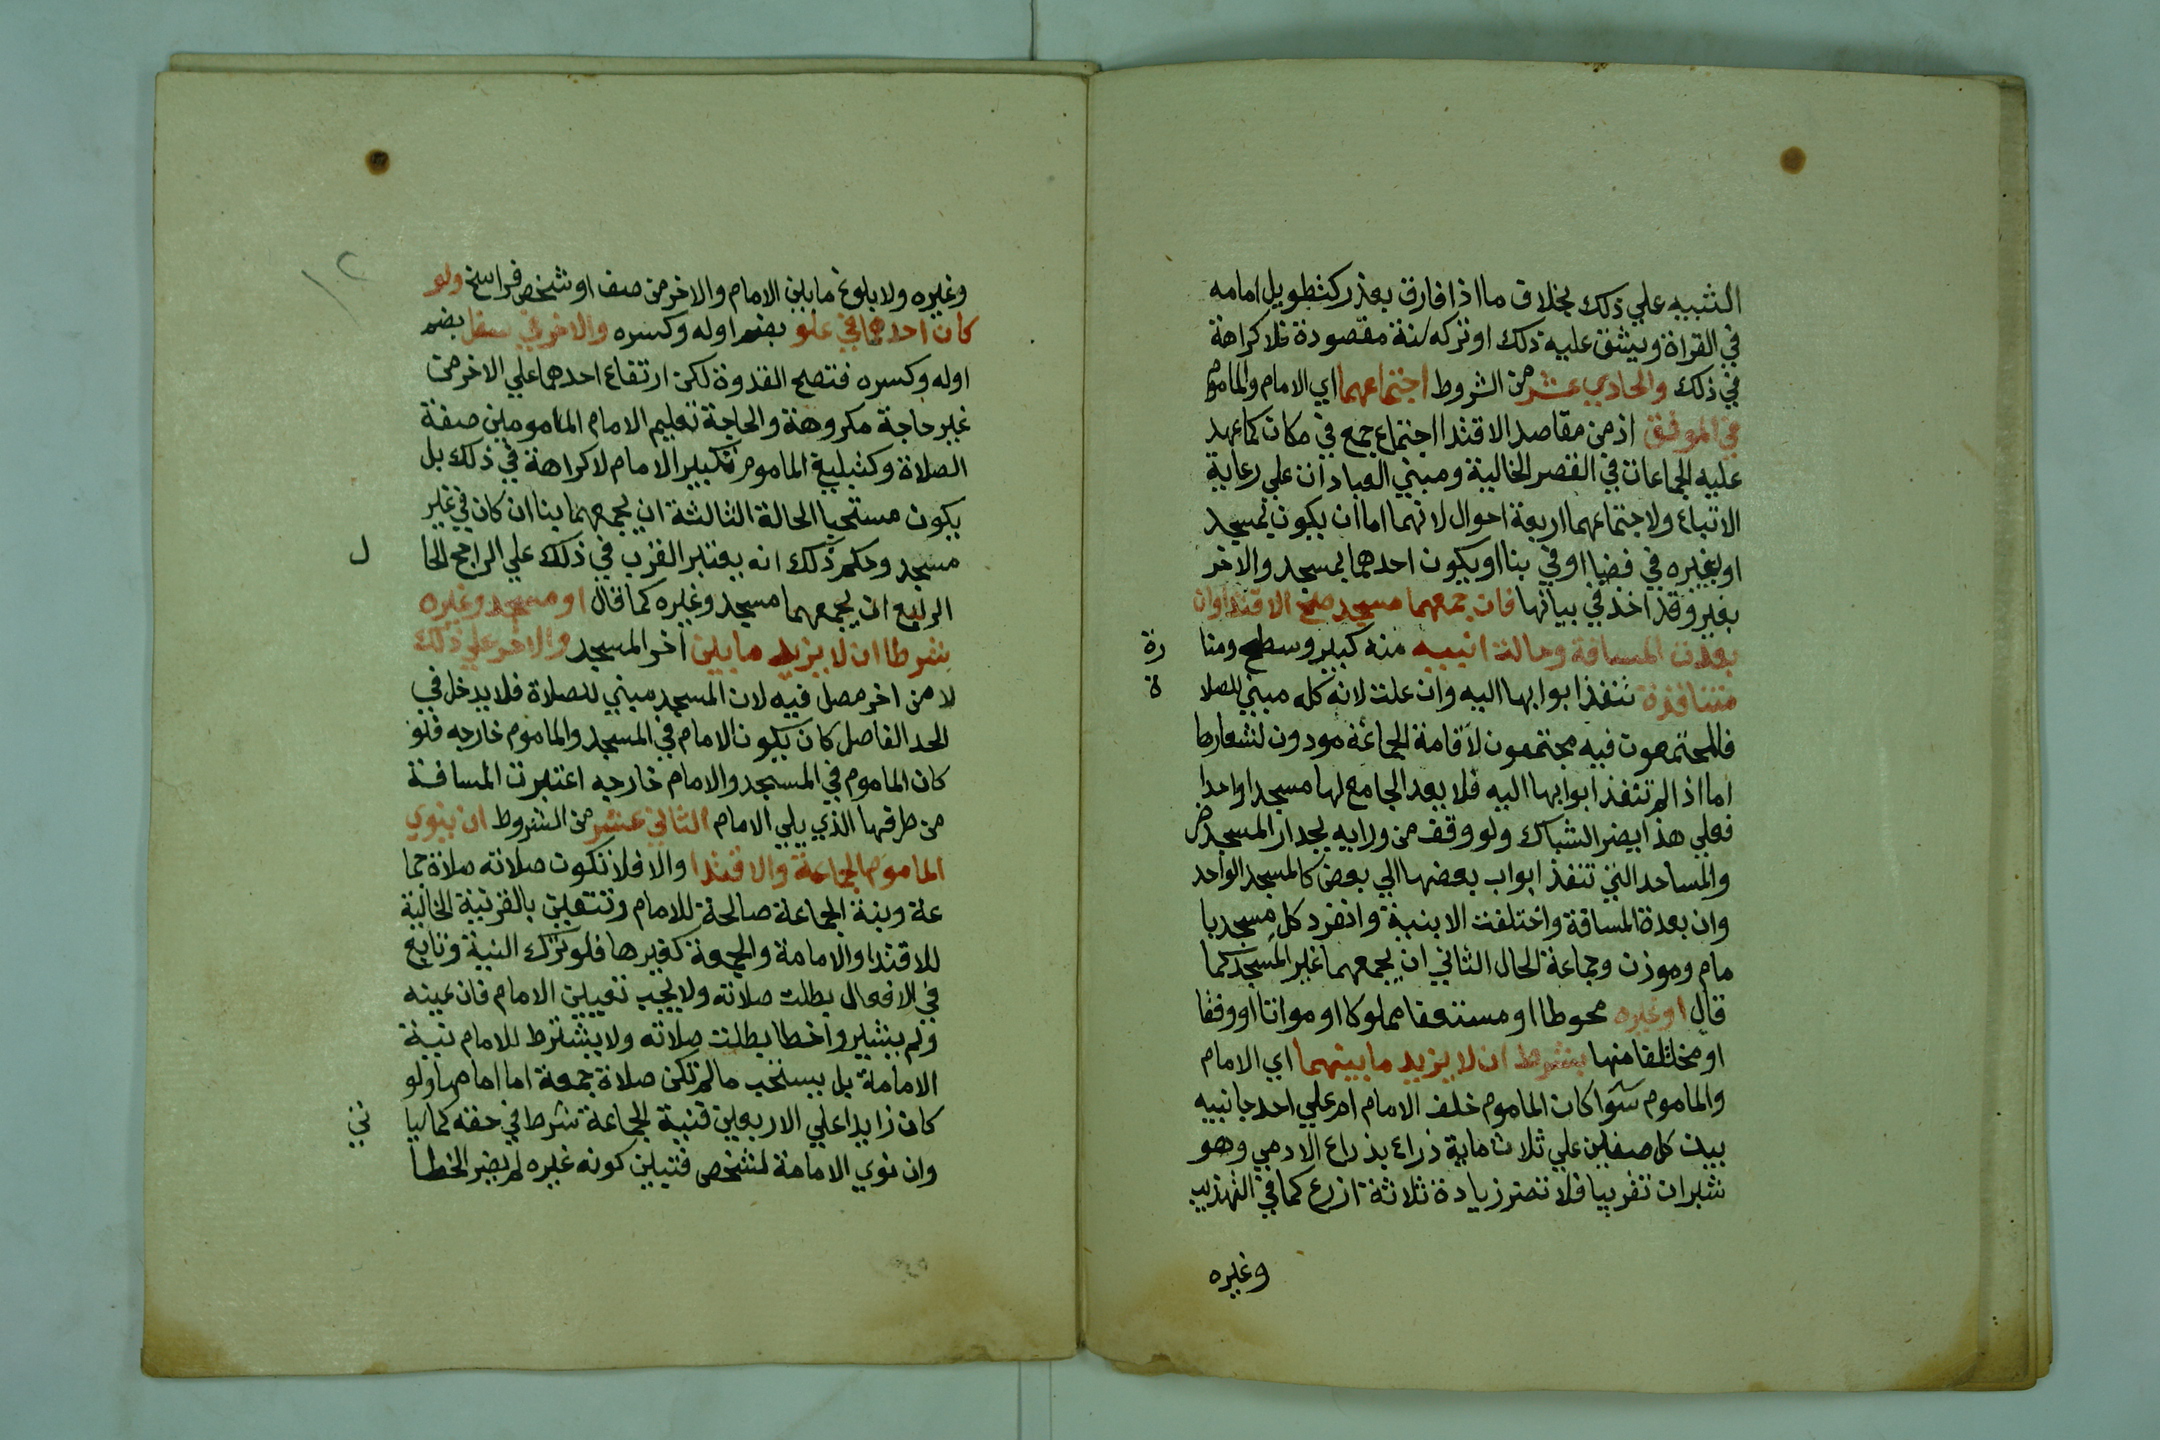 التنبيه علي ذلك بخلاف ما اذا فارق بعذر كتطويل امامه
في القراة ويشق عليه ذلك او تركه سنة مقصودة فلا كراهة
في ذلك والحادي عشر من الشروط اجتماعهما اي الامام والماموم
في الموقف اذ من مقاصد الاقتدا اجتماع جمع في مكان كما عهد
عليه الجماعات في العصر الخالية ومبني العبادات علي رعاية
الاتباع ولاجتماعهما اربعة احوال لانهما اما ان يكون بمسجد
او بغيره في فضا او في بنا او يكون احدهما بمسجد والاخر
بغيره وقد اخذ في بيانها فان جمعهما مسجد صح الاقتدا وان
بعدت المسافة وحالت ابنيه منه كبير وسطح ومنا رة
متنافذة تنفذ ابوابها اليه وان علت لانه كله مبني للصلا ة
فالمجتمعون فيه مجتمعون لاقامة الجماعة مودون لشعارها
اما اذا لم تنفذ ابوابها اليه فلا يعد الجامع لها مسجدا واحدا
فعلي هذا يضر الشباك ولو وقف من ورايه بجدار المسجد ض
والمساجد التي تنفذ ابواب بعضها الي بعض كالمسجد الواحد
وان بعدة المسافة واختلفت الابنية وانفرد كل مسجد با
مام وموذن وجماعة الحال الثاني ان يجمعهما غير المسجد كما
قال او غيره محوطا او مستقفا مملوكا او مواتا او وقفا
او مختلفا منها بشرط ان لا يزيد ما بينهما اي الامام
والماموم سوا كان الماموم خلف الامام ام علي احد جانبيه
بين كل صفين علي ثلاث ماية ذراع بذراع الادمي وهو
شبران تقريبا فلا تضر زيادة ثلاثة اذرع كما في التهذيب
وغيره
١٢
وغيره ولا بلوغ ما بين الامام والاخر من صف او شخص فراسخ ولو
كان احدهما في علو بضم اوله وكسره والاخر في سفل بضم
اوله وكسره فتصح القدوة لكن ارتفاع احدهما علي الاخر من
غير حاجة مكروهة والحاجة تعليم الامام المامومين صفة
الصلاة وكتبليغ الماموم تكبير الامام لا كراهة في ذلك بل
يكون مستحبا الحالة الثالثة ان يجمعهما بنا ان كان في غير
مسجد وحكم ذلك انه يعتبر القرب في ذلك علي الراجح الحا ل
الرابع ان يجمعهما مسجد وغيره كما قال او مسجد وغيره
بشرطا ان لا يزيد ما بين اخر المسجد والاخر علي ذلك
لا من اخر مصل فيه لان المسجد مبني للصلاة فلا يدخل في
الحد الفاصل كان يكون الامام في المسجد والماموم خارجه فلو
كان الماموم في المسجد والامام خارجه اعتبرت المسافة
من طرفها الذي يلي الامام الثاني عشر من الشروط ان ينوي
الماموم الجماعة والاقتدا والا فلا تكون صلاته صلاة جما
عة وبنة الجماعة صالحة للامام وتتعين بالقرنية الخالية
للاقتدا والامامة والجمعة كغيرها فلو ترك النية وتابع
في الافعال بطلت صلاته ولا يجب تعيين الامام فان عينه
ولم يشير واخطا بطلت صلاته ولا يشترط للامام نية
الامامة بل يستحب مالم تكن صلاة جمعة اما امامها ولو
كان زايدا علي الاربعين فنية الجماعة شرط في حقه كما يا تي
وان نوي الامامة لشخص فتبين كونه غيره لم يضر الخطا